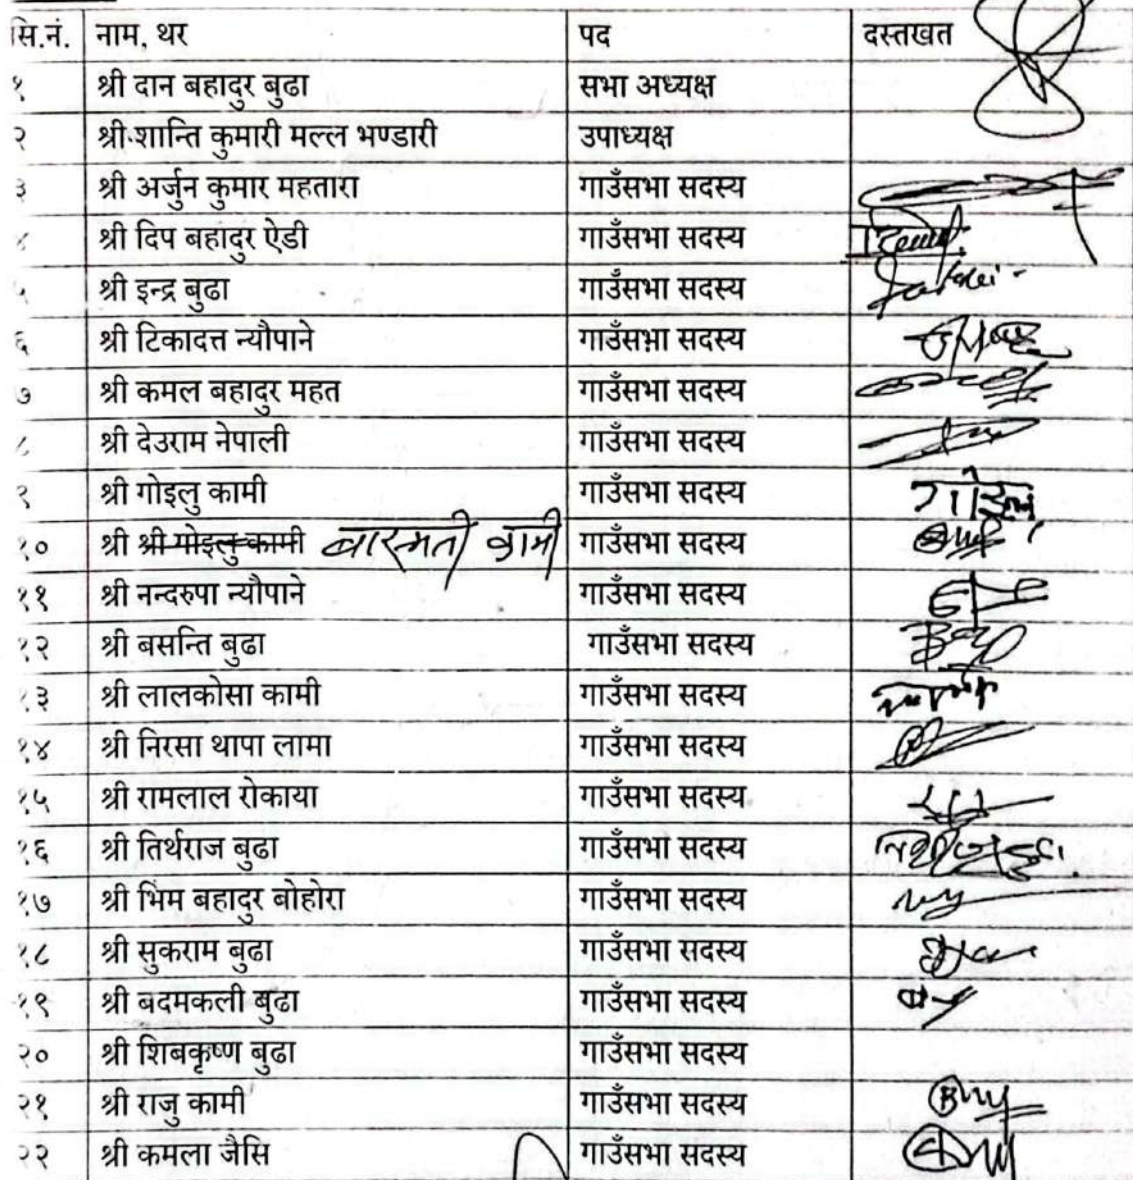 सि.नं. नाम, थर पद दस्तखत
१ श्री दान बहादुर बुढा सभा अध्यक्ष
२ श्री शान्ति कुमारी मल्ल भण्डारी उपाध्यक्ष
३ श्री अर्जुन कुमार महतारा गाउँसभा सदस्य
४ श्री दिप बहादुर ऐडी गाउँसभा सदस्य
५ श्री इन्द्र बुढा गाउँसभा सदस्य
६ श्री टिकादत्त न्यौपाने गाउँसभा सदस्य
७ श्री कमल बहादुर महत गाउँसभा सदस्य
८ श्री देउराम नेपाली गाउँसभा सदस्य
९ श्री गोइलु कामी गाउँसभा सदस्य
१० श्री श्री गोइलु कामी बास्मती कामी गाउँसभा सदस्य
११ श्री नन्दरुपा न्यौपाने गाउँसभा सदस्य
१२ श्री बसन्ति बुढा गाउँसभा सदस्य
१३ श्री लालकोसा कामी गाउँसभा सदस्य
१४ श्री निरसा थापा लामा गाउँसभा सदस्य
१५ श्री रामलाल रोकाया गाउँसभा सदस्य
१६ श्री तिर्थराज बुढा गाउँसभा सदस्य
१७ श्री भिम बहादुर बोहोरा गाउँसभा सदस्य
१८ श्री सुकराम बुढा गाउँसभा सदस्य
१९ श्री बदमकली बुढा गाउँसभा सदस्य
२० श्री शिबकृष्ण बुढा गाउँसभा सदस्य
२१ श्री राजु कामी गाउँसभा सदस्य
२२ श्री कमला जैसि गाउँसभा सदस्य